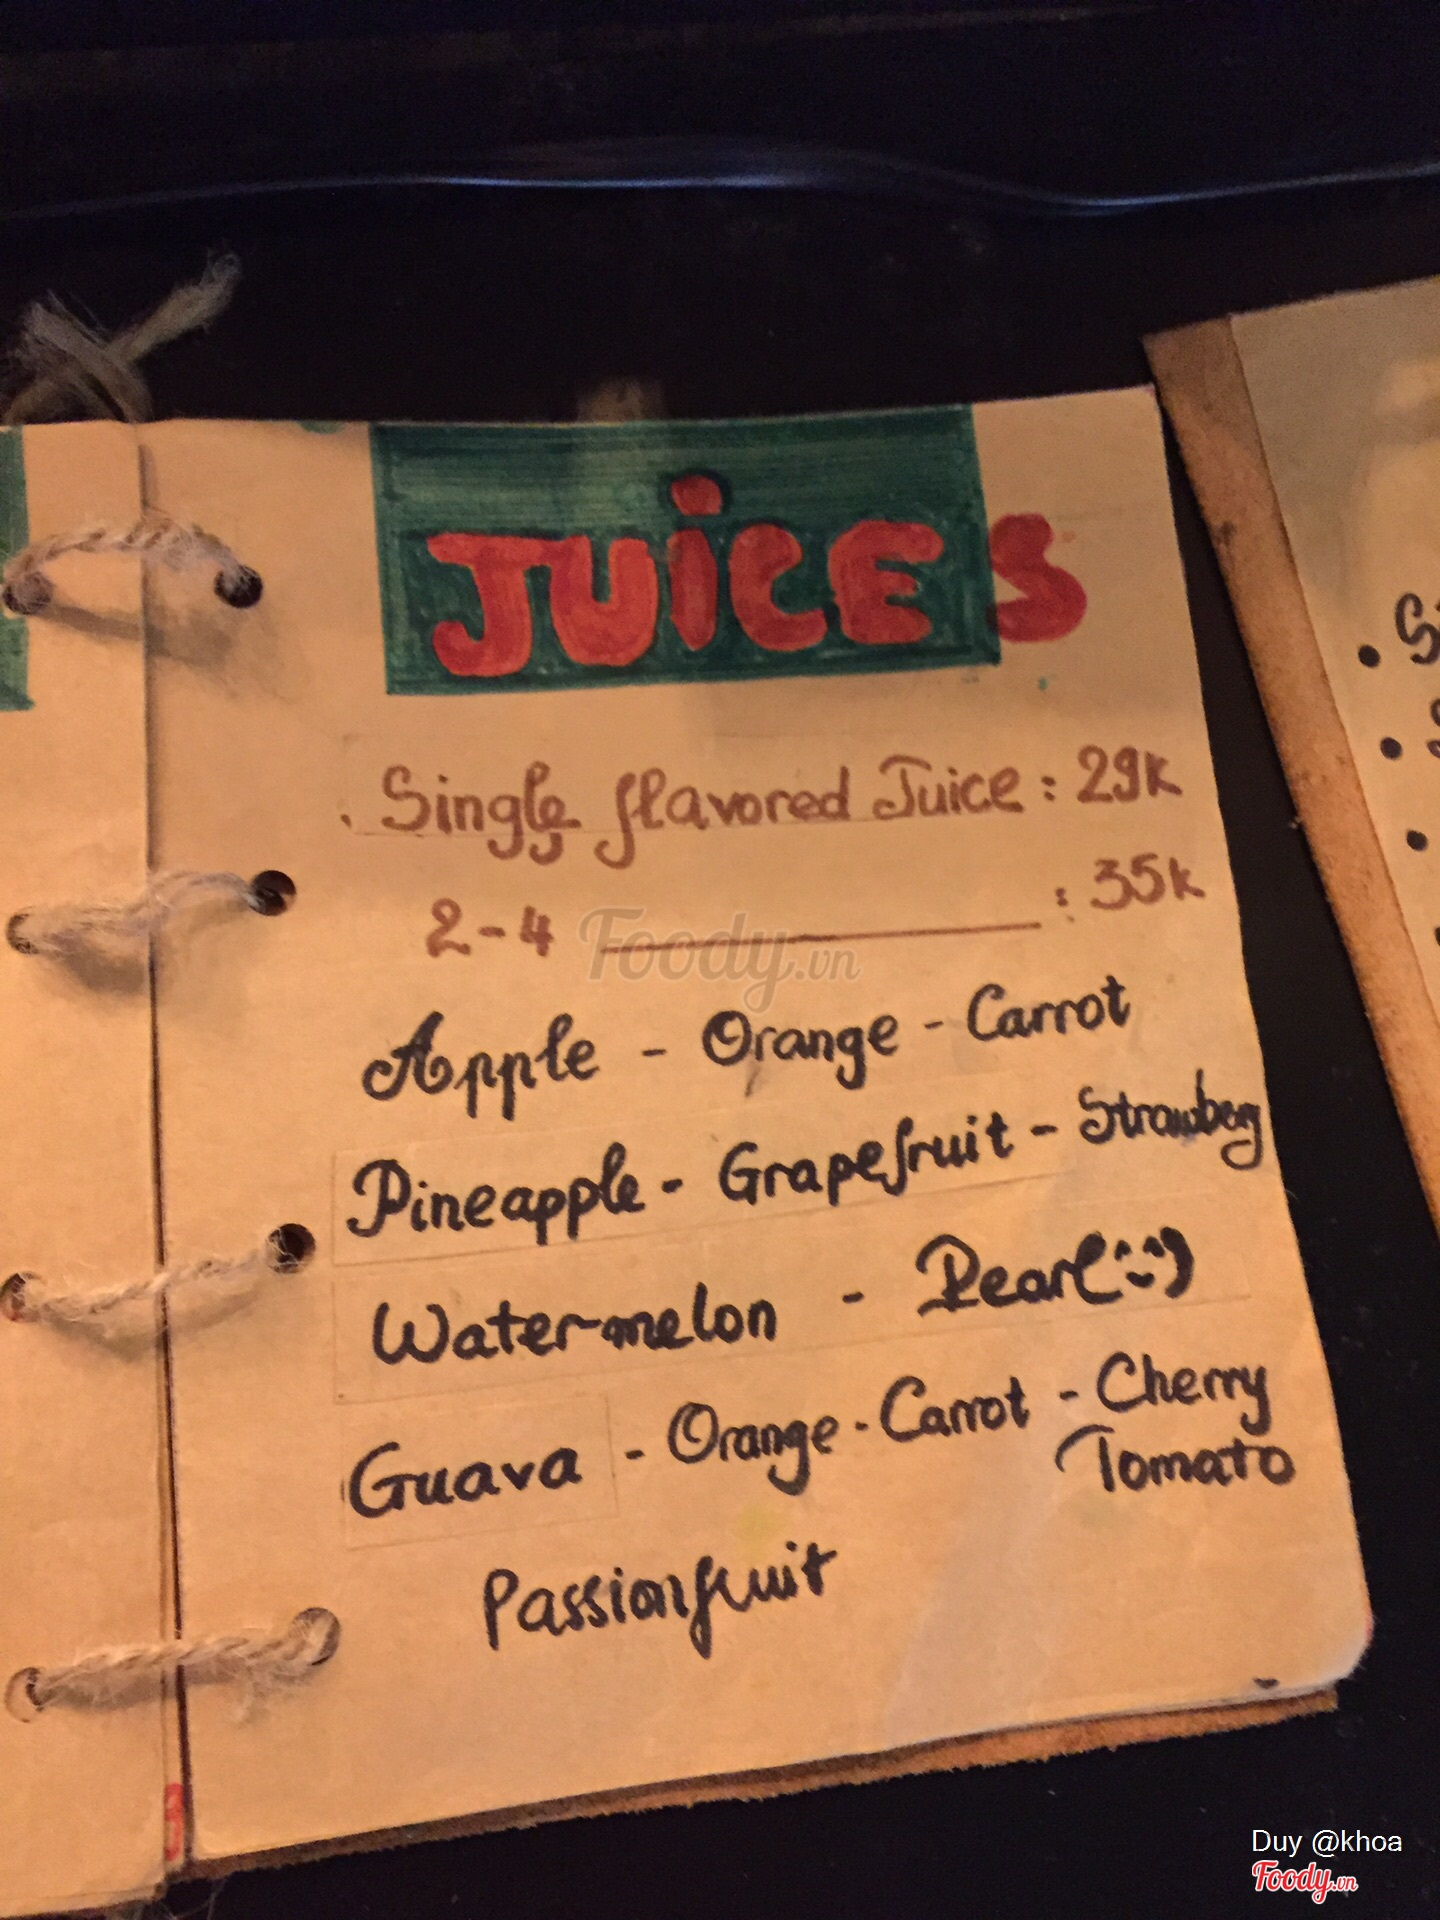 JUICES
. Single flavored Juice : 29k
2-4 ________ : 35k
Foody.vn
Apple - Orange - Carrot
Pineapple - Grapefruit - Strawbery
Water-melon - Pearl :)
Guava - Orange - Carrot - Cherry
Tomato
Passionfruit
Duy @khoa
Foody.vn